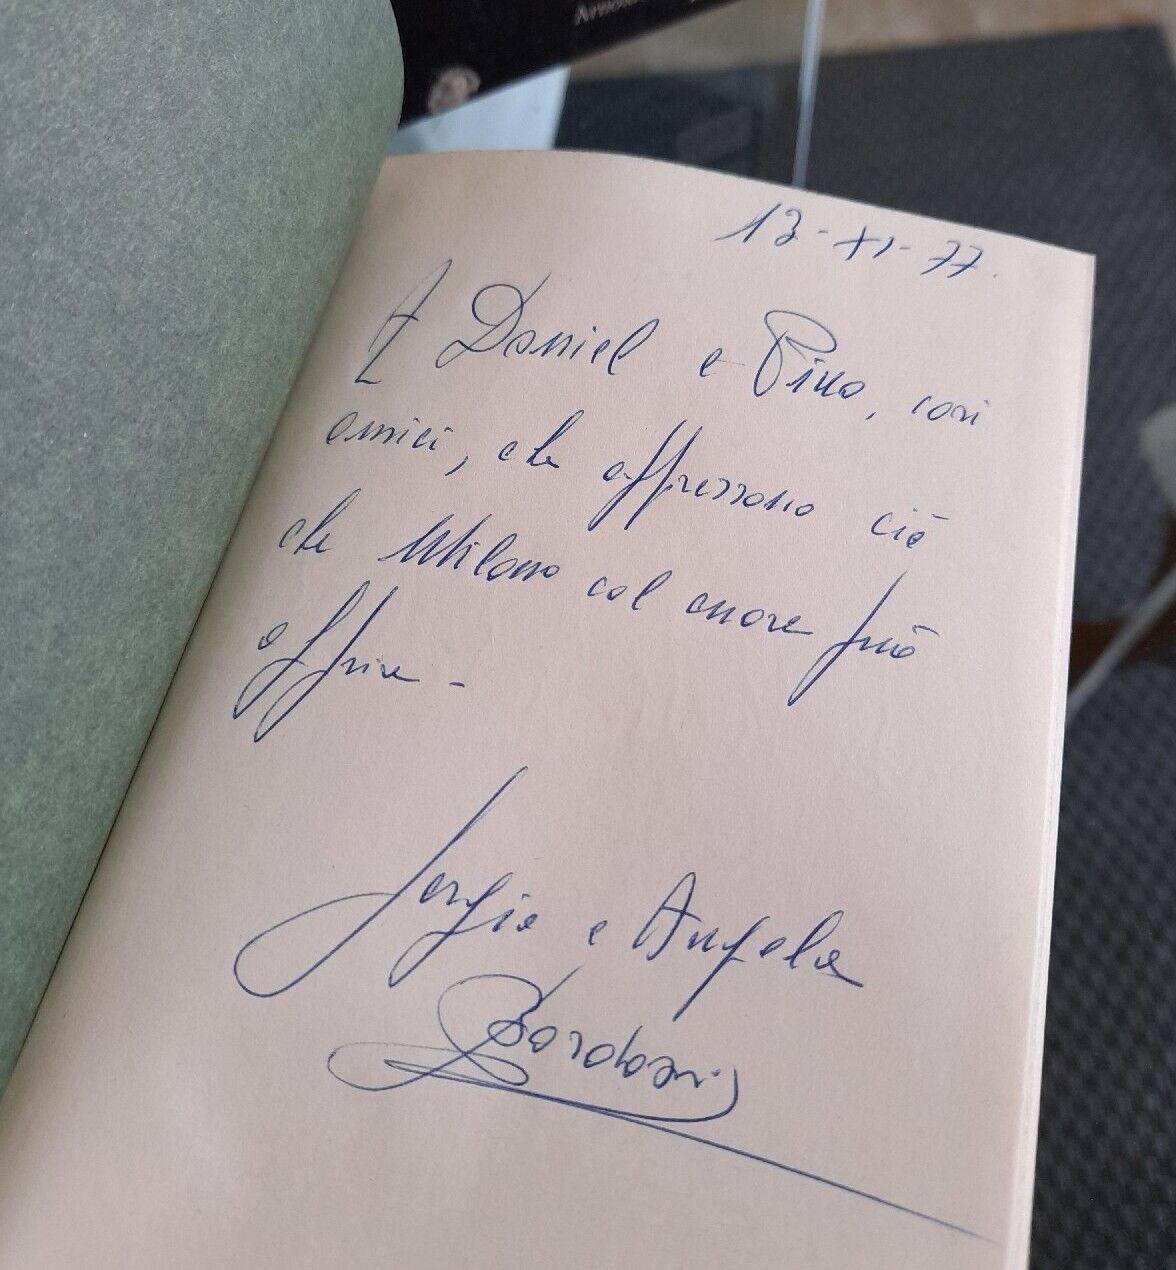 13-XI-77.
A Daniel e Pino, cari
amici, che apprezzano ciò
che Milano col cuore può
offrire -
Sergio e Angela